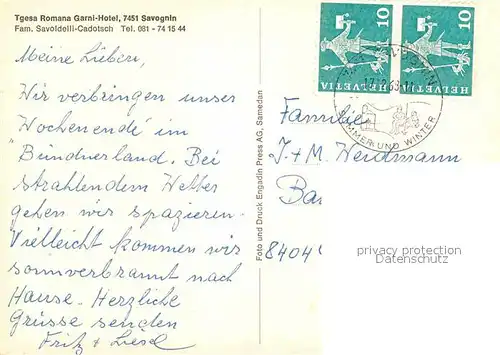 Tgesa Romana Garni-Hotel, 7451 Savognin
Fam. Savoldelli-Cadotsch Tel. 081 - 74 15 44
Meine Lieben,
Wir verbringen unser
Wochenende im
"Bündnerland. Bei
strahlendem Wetter
gehen wir spazieren.
Vielleicht kommen wir
sonnverbrannt nach
Hause. Herzliche
Grüsse senden
Fritz + Liesel
Foto und Druck Engadin Press AG, Samedan
10
HELVETIA
10
HELVETIA
SOMMER UND WINTER
Familie
J. + M. Weidmann
Ba
8404
privacy protection
Datenschutz